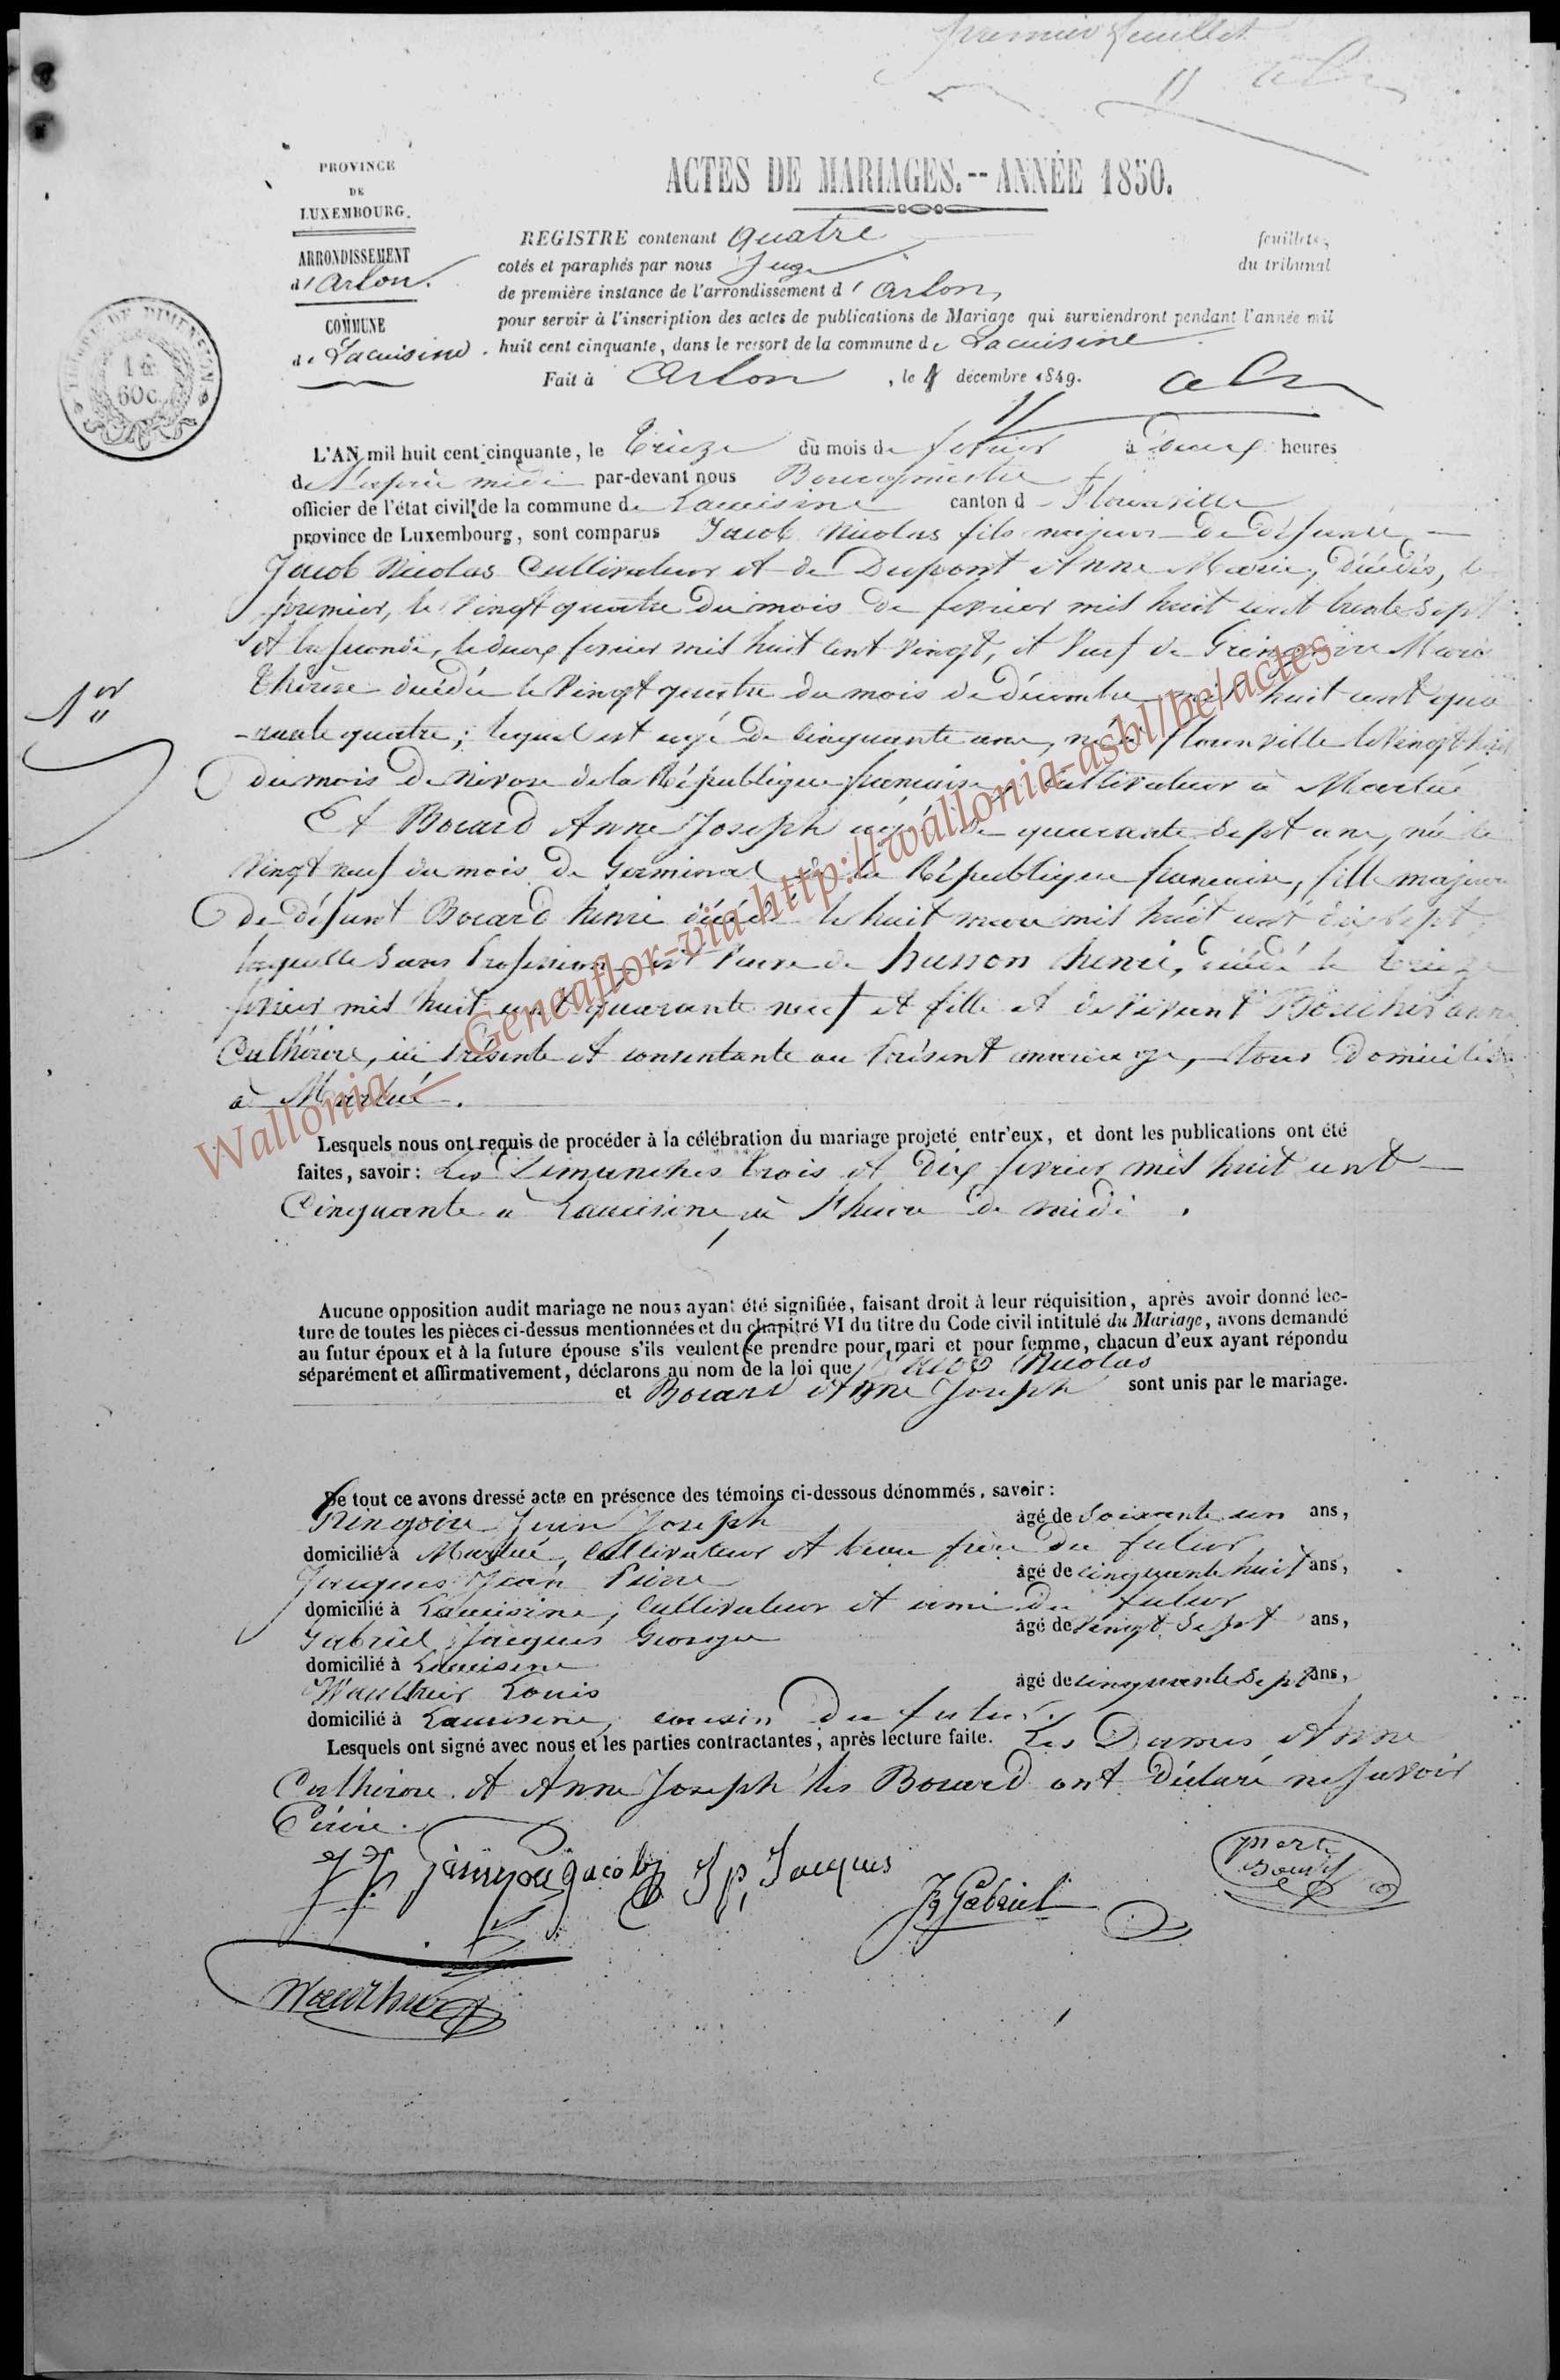 premier feuillet
PROVINCE
DE
LUXEMBOURG.
ARRONDISSEMENT
d'Arlon.
COMMUNE
de Lacuisine.
TIMBRE DE DIMENSION
60 C.
ACTES DE MARIAGES.--ANNÉE 1850.
REGISTRE contenant quatre feuillets,
cotés et paraphés par nous Juge du tribunal
de première instance de l'arrondissement d'Arlon,
pour servir à l'inscription des actes de publications de Mariage qui surviendront pendant l'année mil
huit cent cinquante, dans le ressort de la commune de Lacuisine.
Fait à Arlon, le 4 décembre 1849.
1er
L'AN mil huit cent cinquante, le treize du mois de fevrier à deux heures
de l'après midi par-devant nous Bourgmestre
officier de l'état civil de la commune de Lacuisine canton d Florenville
province de Luxembourg, sont comparus Jacob Nicolas fils majeur de défunts
Jacob Nicolas Cultivateur et de Dupont Anne Marie, décédés, le
premier, le vingt quatre du mois de fevrier mil huit cent trente sept
et la seconde, le deux fevrier mil huit cent vingt, et veuf de Gringoire Marie
Thérèse décédée le vingt quatre du mois de décembre mil huit cent qua
-rante quatre; lequel est agé de cinquante ans, né à florenville le vingt huit
du mois de nivose de la République française, Cultivateur à Martué
Et Bocard Anne Joseph agée de quarante sept ans, née le
vingt neuf du mois de Germinal de la République française, fille majeure
de défunt Bocard henri décédé le huit mars mil huit cent dix sept,
laquelle sans profession est veuve de husson henri, décédé le treize
fevrier mil huit cent quarante neuf et fille et de vivant Boucher anne
Catherine, ici présente et consentante au présent mariage, tous domiciliés
à Martué.
Lesquels nous ont requis de procéder à la célébration du mariage projeté entr'eux, et dont les publications ont été
faites, savoir: Les Dimanches trois et dix fevrier mil huit cent
Cinquante à Lacuisine, à l'heure de midi.
Aucune opposition audit mariage ne nous ayant été signifiée, faisant droit à leur réquisition, après avoir donné lec-
ture de toutes les pièces ci-dessus mentionnées et du chapitre VI du titre du Code civil intitulé du Mariage, avons demandé
au futur époux et à la future épouse s'ils veulent se prendre pour mari et pour femme, chacun d'eux ayant répondu
séparément et affirmativement, déclarons au nom de la loi que Jacob Nicolas
et Bocard Anne Joseph sont unis par le mariage.
De tout ce avons dressé acte en présence des témoins ci-dessous dénommés, savoir:
Gringoire Jean Joseph âgé de soixante un ans,
domicilié à Martué, Cultivateur et beau frère du futur,
Jacques Jean Pierre âgé de cinquante huit ans,
domicilié à Lacuisine, Cultivateur et ami du futur
Gabriel Jacques George âgé de vingt sept ans,
domicilié à Lacuisine
Wauthier Louis âgé de cinquante sept ans,
domicilié à Lacuisine, cousin du futur.
Lesquels ont signé avec nous et les parties contractantes, après lecture faite. Les Dames Anne
Catherine et Anne Joseph les Bocard ont déclaré ne savoir
Écrire.
JJ Gringoire Jacob JP, Jacques
JG Gabriel
Wauthier
Wallonia - Geneaflor-via http://wallonia-asbl/be/actes